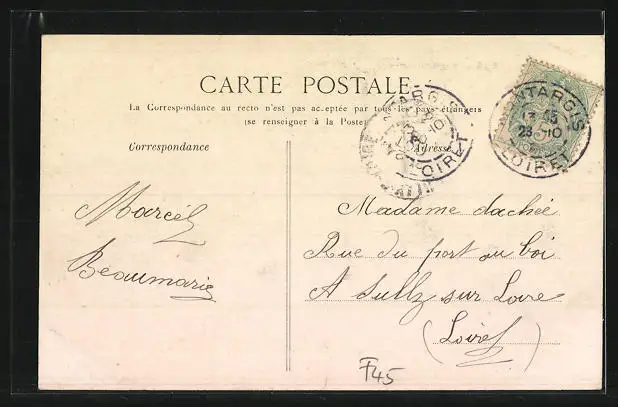 CARTE POSTALE
La Correspondance au recto n'est pas acceptée par tous les pays étrangers
(se renseigner à la Poste)
Correspondance
Adresse
MONTARGIS
LOIRET
TARGIS
23 -10
LOIRET
Marcel
Beaumarie
Madame dachée
Rue du port au boi
A Sully sur Loire
(Loiret)
F45